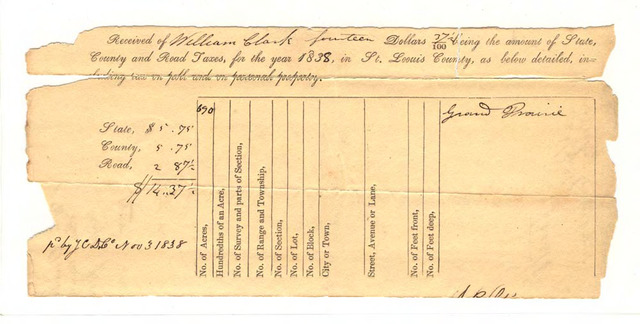 Received of William Clark fourteen Dollars 37½/100 being the amount of State,
County and Road Taxes, for the year 1838, in St. Louis County, as below detailed, in-
cluding tax on poll and on personal property.
State, $5.75
County, 5.75
Road, 2 87½
$14.37½
Nov 3 1838
690
No. of Acres,
Hundredths of an Acre,
No. of Survey and parts of Section,
No. of Range and Township,
No. of Section,
No. of Lot,
No. of Block,
City or Town,
Street, Avenue or Lane,
No. of Feet front,
No. of Feet deep,
Grand Prairie